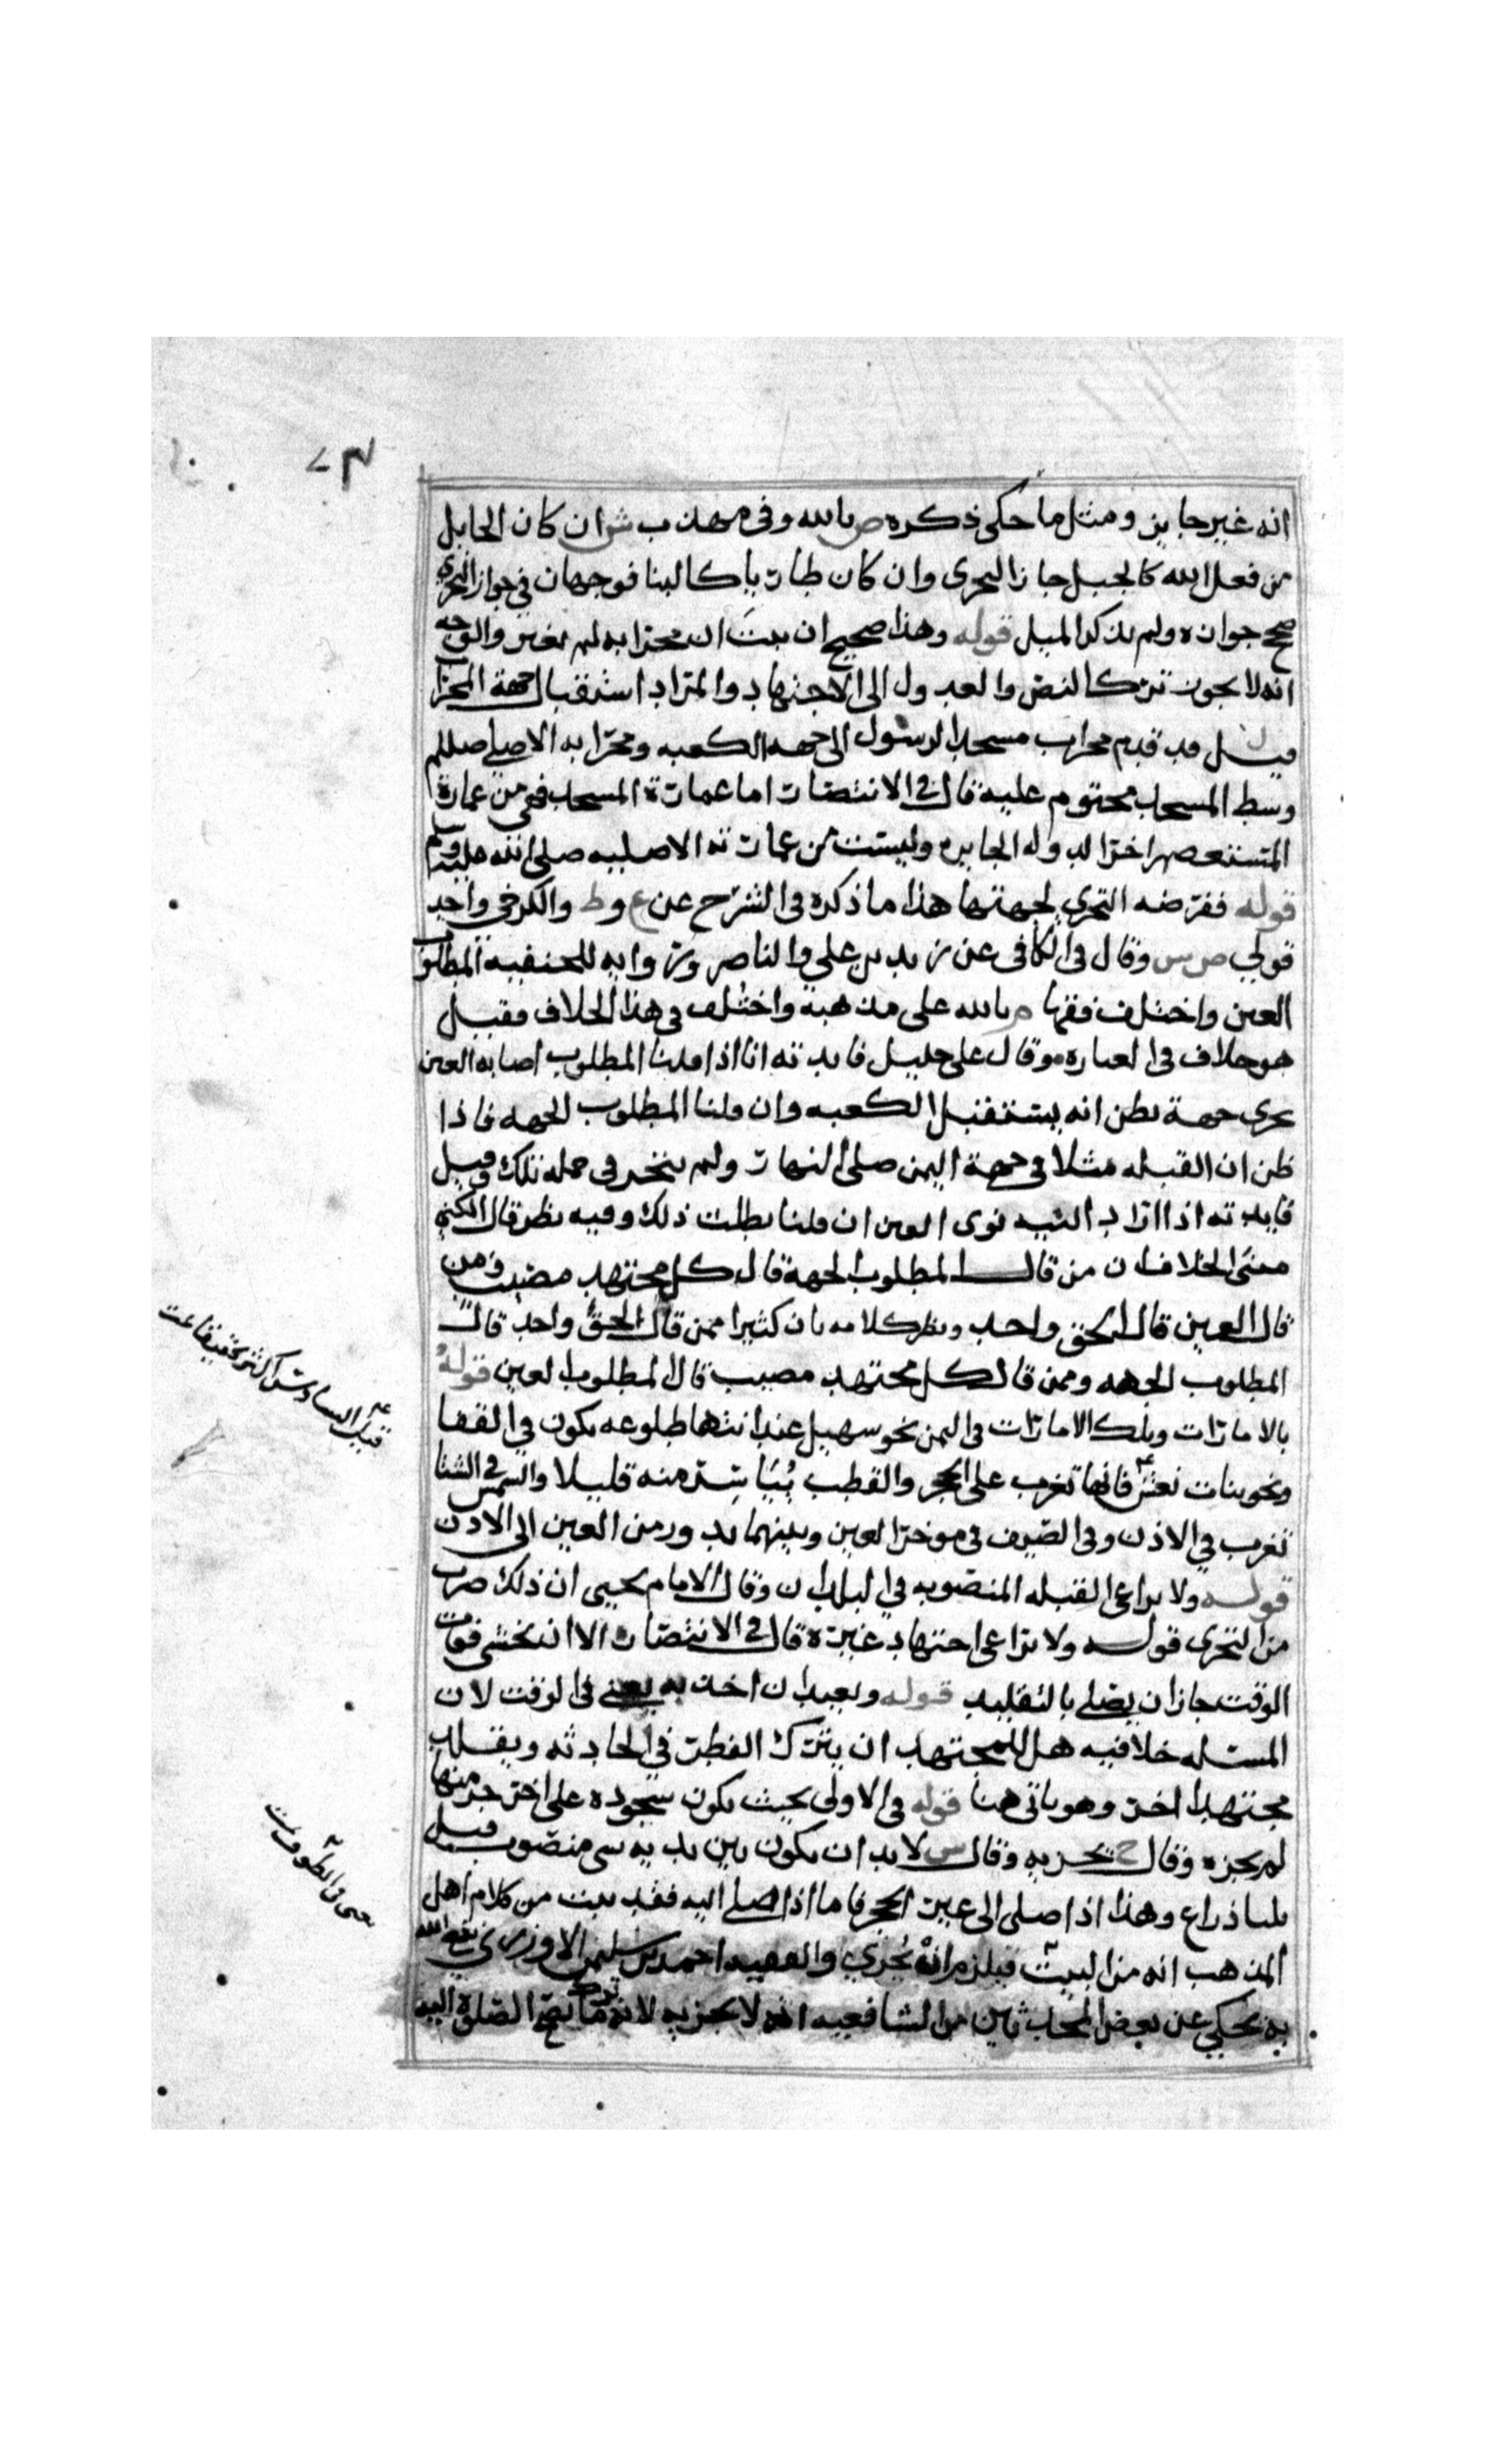 انه غير جايز ومثل ما حكى ذكره ص بالله وفي مهذب ش ان كان الحايل
من فعل الله كالجبل جاز التحري وان كان طاريا كالبنا فوجهان في جواز التحري
صحح جوازه ولم يذكر الميل قوله وهذا صحيح ان ثبت ان محرابه لم يغير والوجه
انه لا يجوز ترك النص والعدول الى الاجتهاد والمراد استقبال جهة المحراب
قيل قد قدم محراب مسجد الرسول الى جهة الكعبه ومحرابه الاصلي صللم
وسط المسجد مختوم عليه قال في الانتصار اما عمارة المسجد فهي من عمارة
المستعصم اخر الدوله الجايره وليست من عمارته الاصليه صلى الله عليه وسلم
قوله ففرضه التحري لجهتها هذا ما ذكره في الشرح عن ع و ط والكرخي واحد
قولي ص ش وقال في الكافي عن زيد بن علي والناصر وروايه للحنفيه المطلوب
العين واختلف فقها م بالله على مذهبه واختلف في هذا الخلاف فقيل
هو خلاف في العباره وقال علي خليل فايدته انا اذا قلنا المطلوب اصابه العين
تحرى جهة يظن انه يستقبل الكعبه وان قلنا المطلوب الجهه فاذا
ظن ان القبله مثلا في جهة اليمن صلى النهار ولم يتحر في جمله تلك وقيل
فايدته اذا اراد النيه نوى العين ان قلنا بطلت ذلك وفيه نظر قال الكني
معنى الخلاف ان من قال المطلوب الجهة قال كل مجتهد مصيب ومن
قال العين قال الحق واحد ونظر كلامه بان كثيرا ممن قال الحق واحد قال
المطلوب الجهه وممن قال كل مجتهد مصيب قال المطلوب العين قوله
بالامارات وتلك الامارات في اليمن نحو سهيل عند انتها طلوعه يكون في القفا
ونحو بنات نعش فانها تغرب على الحجر والقطب يياسر منه قليلا والشمس في الشتا
تغرب في الاذن وفي الصيف في موخر العين وبينهما يدور من العين الى الاذن
قوله ولا يراعى القبله المنصوبه في البلدان وقال الامام يحيى ان ذلك ضرب
من التحري قوله ولا يراعى اجتهاد غيره قال في الانتصار الا ان يخشى فوت
الوقت جاز ان يصلي بالتقليد قوله ويعيد ان اخذ به يعني في الوقت لان
المسئله خلافيه هل للمجتهد ان يترك النظر في الحادثه ويقلد
مجتهدا اخر وهو ياتي هنا قوله في الاولى بحيث يكون سجوده على اخر جزء منها
لم يجزه وقال ح يجزيه وقال ش لا بد ان يكون بين يديه شي منصوب قيل
ثلثا ذراع وهذا اذا صلى الى غير الحجر فاما اذا صلى اليه فقد ثبت من كلام اهل
المذهب انه من البيت فيلزم انه يجزي والفقيه احمد بن سليمن الاوزري نفع الله
به يحكي عن بعض المحدثين من الشافعيه انه لا يجزيه لانه ما تصح الصلوة اليه